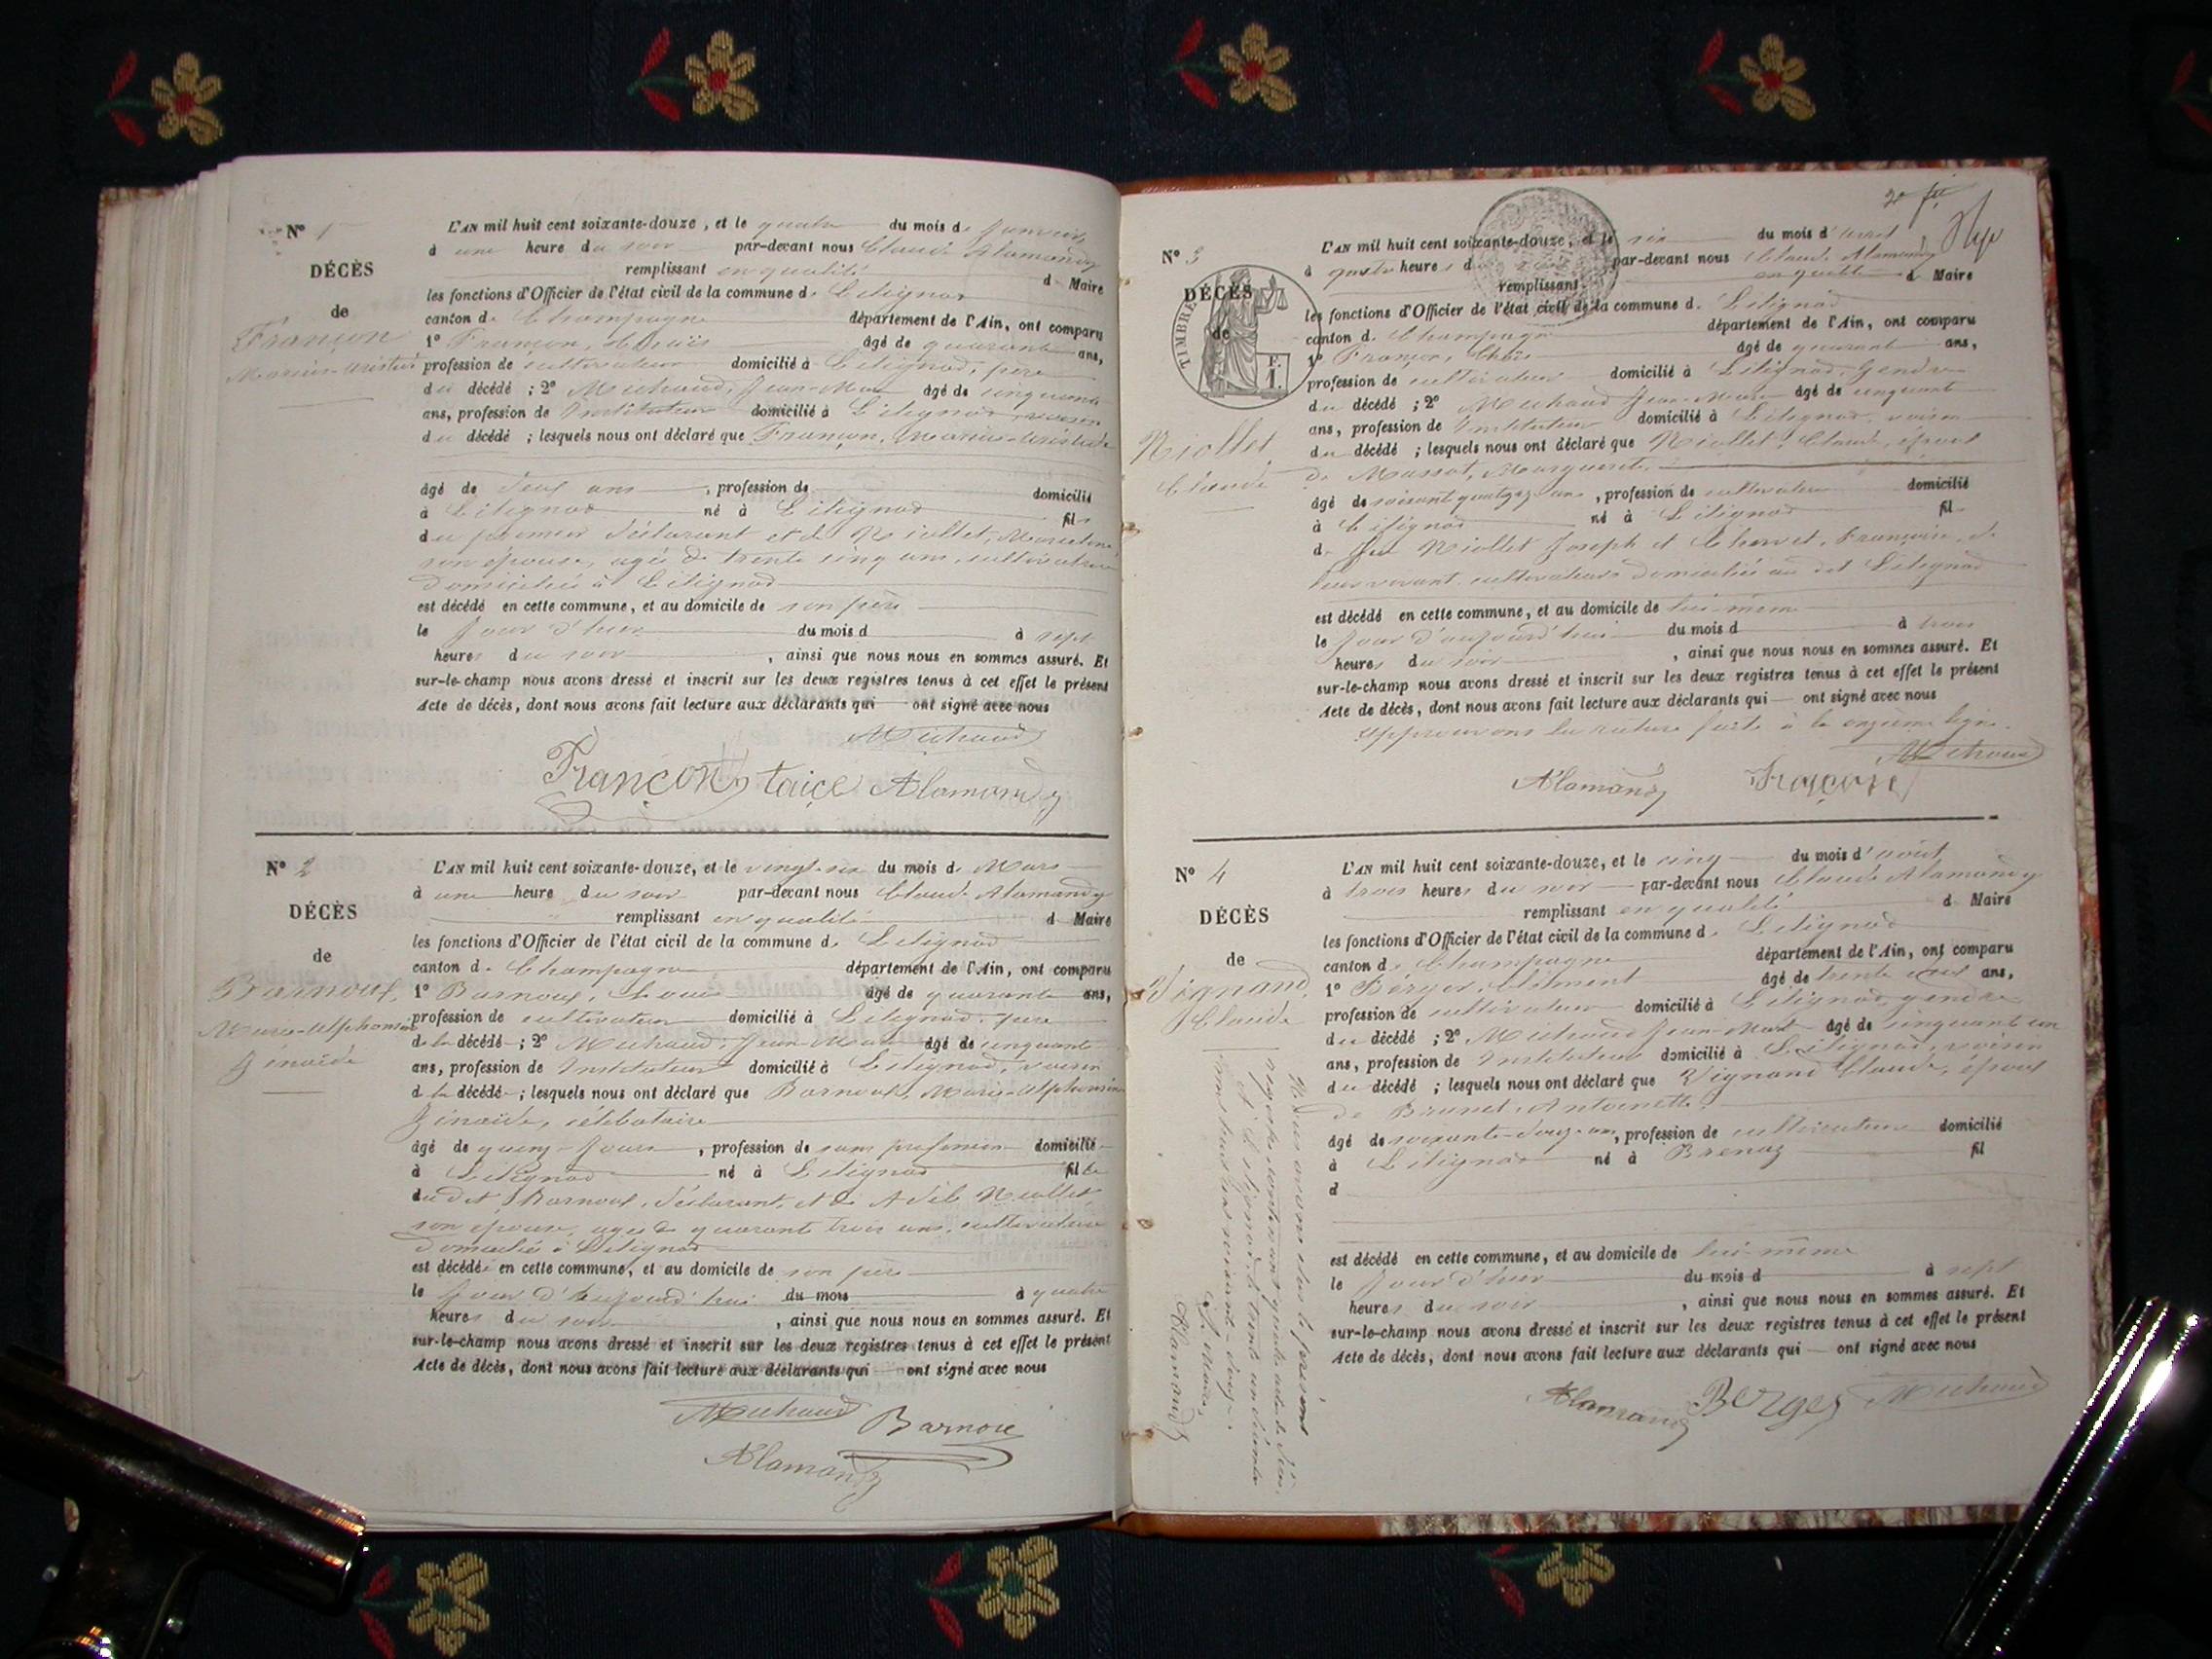 N° 1
DÉCÈS
de
Françon
Marius-Aristide
L'AN mil huit cent soixante-douze, et le quatre du mois de Janvier
à une heure du soir par-devant nous Claude Alamandy
remplissant en qualité de Maire
les fonctions d'Officier de l'état civil de la commune de Lilignod
canton de Champagne département de l'Ain, ont comparu
1° Françon, âgé de quarante ans,
profession de cultivateur domicilié à Lilignod, père
du décédé ; 2° Michaud, Jean-Marie âgé de cinquante
ans, profession de Instituteur domicilié à Lilignod voisin
du décédé ; lesquels nous ont déclaré que Françon, Marius-Aristide
âgé de deux ans , profession de domicilié
à Lilignod né à Lilignod fils
du premier déclarant et de Niollet,
son épouse, agée de trente cinq ans, cultivatrice
domiciliée à Lilignod
est décédé en cette commune, et au domicile de son père
le jour d'hier du mois d à sept
heures du soir , ainsi que nous nous en sommes assuré. Et
sur-le-champ nous avons dressé et inscrit sur les deux registres tenus à cet effet le présent
Acte de décès, dont nous avons fait lecture aux déclarants qui ont signé avec nous
Michaud
Françon Alamandy
N° 2
DÉCÈS
de
Barnoux,
Marie-Alphonsine
Zénaïde
L'AN mil huit cent soixante-douze, et le vingt-six du mois de Mars
à une heure du soir par-devant nous Claude Alamandy
remplissant en qualité de Maire
les fonctions d'Officier de l'état civil de la commune de Lilignod
canton de Champagne département de l'Ain, ont comparu
1° Barnoux, Louis âgé de quarante ans,
profession de cultivateur domicilié à Lilignod, père
de la décédé ; 2° Michaud, Jean-Marie âgé de cinquante
ans, profession de Instituteur domicilié à Lilignod, voisin
de la décédé ; lesquels nous ont déclaré que Barnoux, Marie-Alphonsine
Zénaïde, célibataire
âgé de quinze jours , profession de sans profession domicilié
à Lilignod né à Lilignod fille
dudit Barnoux, déclarant, et de Adèle Niollet
son épouse, agée de quarante trois ans, cultivatrice
domiciliée à Lilignod
est décédée en cette commune, et au domicile de son père
le jour d'aujourd'hui du mois à quatre
heures du soir , ainsi que nous nous en sommes assuré. Et
sur-le-champ nous avons dressé et inscrit sur les deux registres tenus à cet effet le présent
Acte de décès, dont nous avons fait lecture aux déclarants qui ont signé avec nous
Michaud Barnoux
Alamandy
N° 3
TIMBRE
F. 1.
DÉCÈS
de
Niollet
Claude
L'AN mil huit cent soixante-douze, et le six du mois d'avril
à quatre heures d par-devant nous Claude Alamandy
remplissant en qualité de Maire
les fonctions d'Officier de l'état civil de la commune de Lilignod
canton de Champagne département de l'Ain, ont comparu
1° Françon, âgé de quarante ans,
profession de cultivateur domicilié à Lilignod, Gendre
du décédé ; 2° Michaud Jean-Marie âgé de cinquante
ans, profession de Instituteur domicilié à Lilignod, voisin
du décédé ; lesquels nous ont déclaré que Niollet, Claude, époux
de Massot, Marguerite
âgé de ans , profession de cultivateur domicilié
à Lilignod né à Lilignod fils
de feu Niollet Joseph et Françoise, de
leur vivant cultivateurs domiciliés au dit Lilignod
est décédé en cette commune, et au domicile de lui-même
le jour d'aujourd'hui du mois d à trois
heures du soir , ainsi que nous nous en sommes assuré. Et
sur-le-champ nous avons dressé et inscrit sur les deux registres tenus à cet effet le présent
Acte de décès, dont nous avons fait lecture aux déclarants qui ont signé avec nous
Approuvons la rature faite à la onzième ligne.
Michaud
Alamandy Françon
N° 4
DÉCÈS
de
Vignand,
Claude
L'AN mil huit cent soixante-douze, et le cinq du mois d'août
à trois heures du soir par-devant nous Claude Alamandy
remplissant en qualité de Maire
les fonctions d'Officier de l'état civil de la commune de Lilignod
canton de Champagne département de l'Ain, ont comparu
1° Berger, Clément âgé de trente ans,
profession de cultivateur domicilié à Lilignod, gendre
du décédé ; 2° Michaud Jean-Marie âgé de cinquante un
ans, profession de Instituteur domicilié à Lilignod, voisin
du décédé ; lesquels nous ont déclaré que Vignand Claude, époux
de Brunet, Antoinette
âgé de soixante-douze ans, profession de cultivateur domicilié
à Lilignod né à Brenaz fil
d
est décédé en cette commune, et au domicile de lui-même
le jour d'hier du mois d à sept
heures du soir , ainsi que nous nous en sommes assuré. Et
sur-le-champ nous avons dressé et inscrit sur les deux registres tenus à cet effet le présent
Acte de décès, dont nous avons fait lecture aux déclarants qui ont signé avec nous
Alamandy Berger Michaud
Nous avons clos le présent
registre contenant quatre actes de décès.
A Lilignod le trente un décembre
mil huit cent soixante-douze.
Le Maire,
Alamandy